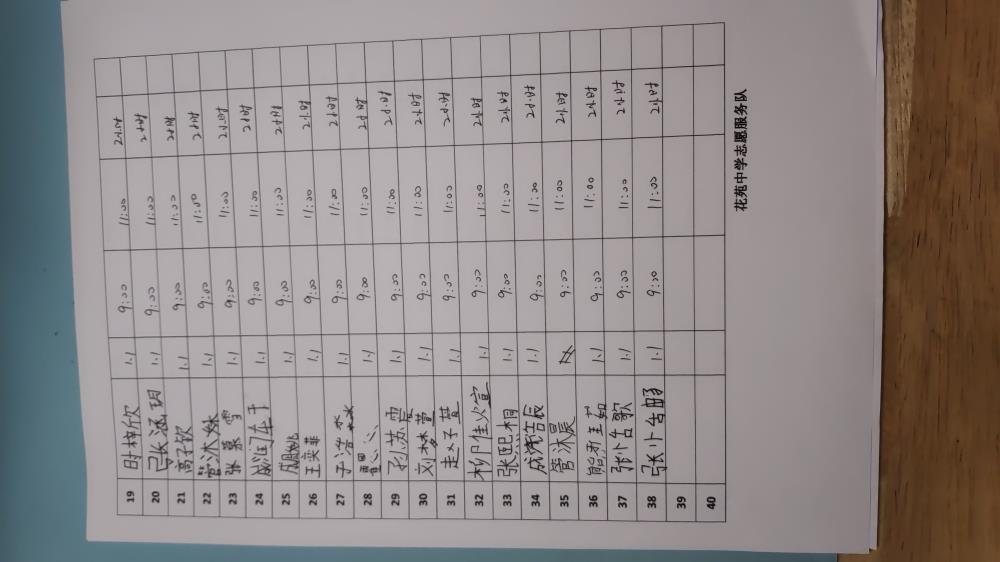 19 时梓欣 1.1 9:00 11:00 2小时
20 张涵玥 1.1 9:00 11:00 2小时
21 高子钦 1.1 9:00 11:00 2小时
22 管沐姝 1.1 9:00 11:00 2小时
23 张慕雪 1.1 9:00 11:00 2小时
24 1.1 9:00 11:00 2小时
25 1.1 9:00 11:00 2小时
26 王奕菲 1.1 9:00 11:00 2小时
27 1.1 9:00 11:00 2小时
28 1.1 9:00 11:00 2小时
29 孙苏雯 1.1 9:00 11:00 2小时
30 1.1 9:00 11:00 2小时
31 赵子萱 1.1 9:00 11:00 2小时
32 杉佳火宣 1.1 9:00 11:00 2小时
33 张熙桐 1.1 9:00 11:00 2小时
34 1.1 9:00 11:00 2小时
35 管沐晨 9:00 11:00 2小时
36 1.1 9:00 11:00 2小时
37 1.1 9:00 11:00 2小时
38 1.1 9:00 11:00 2小时
39
40
花苑中学志愿服务队